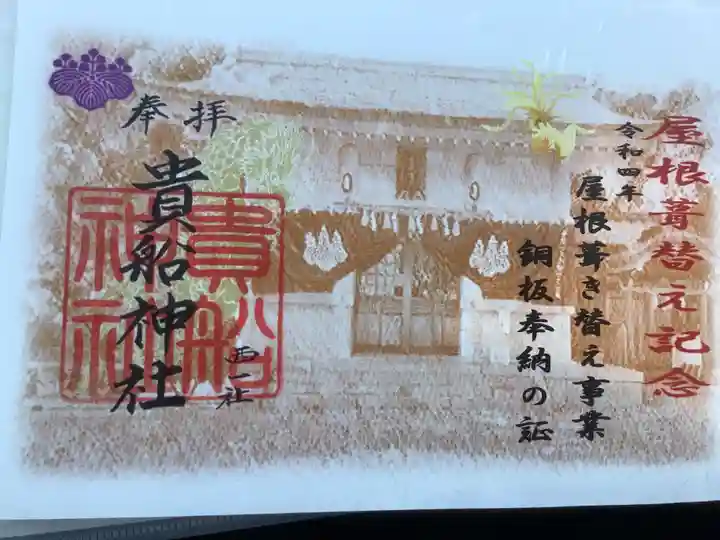 屋根葺替え記念
令和四年
屋根葺き替え事業
銅板奉納の証
奉拝
貴船神社
貴船神社